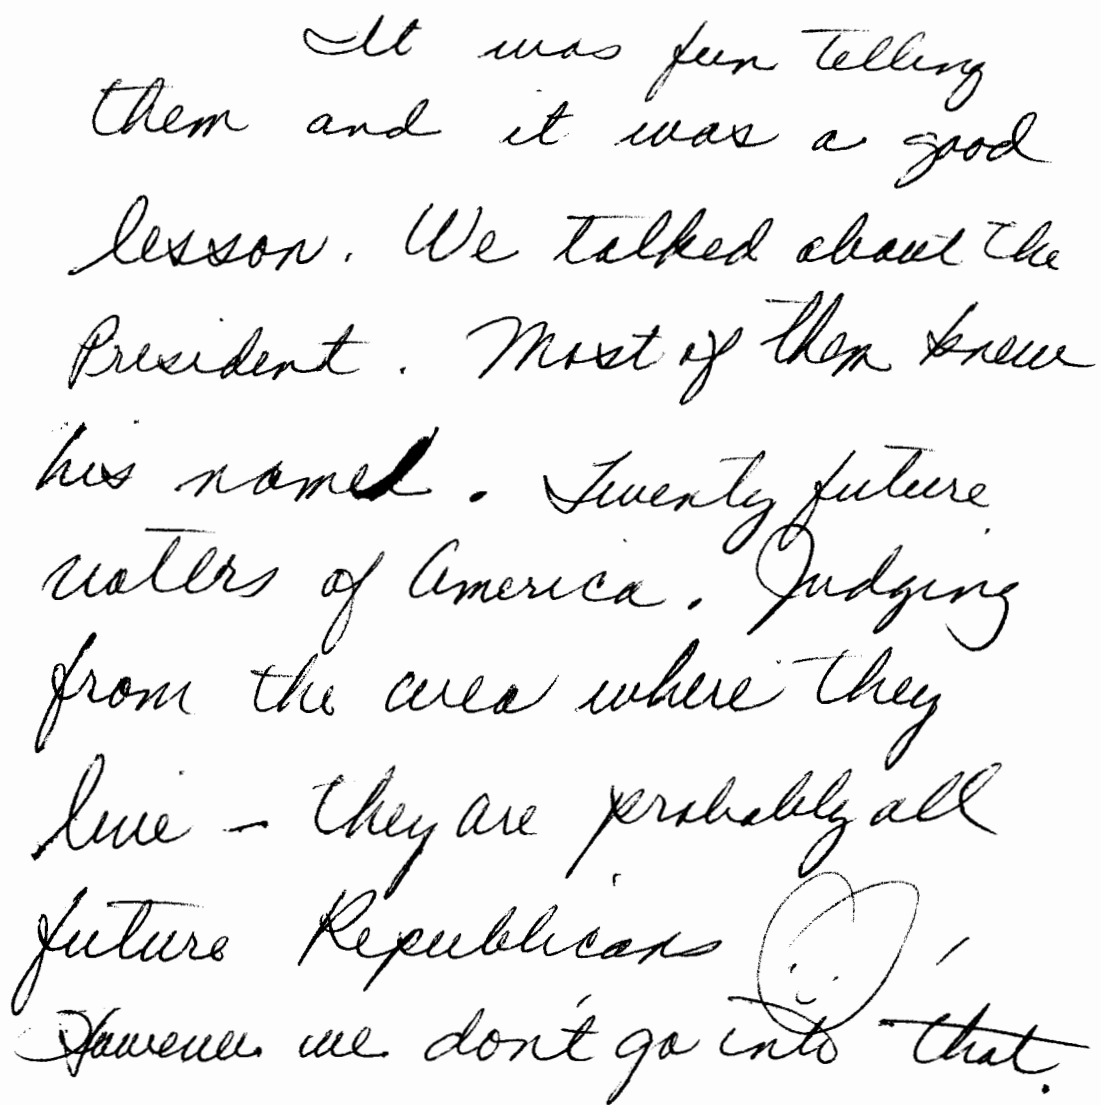 It was fun telling
them and it was a good
lesson. We talked about the
President. Most of them knew
his name. Twenty future
voters of America. Judging
from the area where they
live - they are probably all
future Republicans
However we don't go into that.